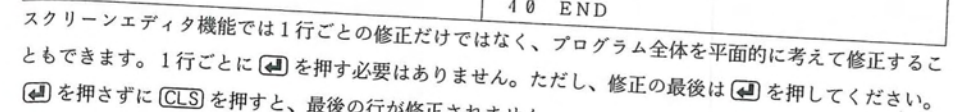 40 END
スクリーンエディタ機能では1行ごとの修正だけではなく、プログラム全体を平面的に考えて修正するこ
ともできます。1行ごとに ↵ を押す必要はありません。ただし、修正の最後は ↵ を押してください。
↵ を押さずに CLS を押すと、最後の行が修正されません